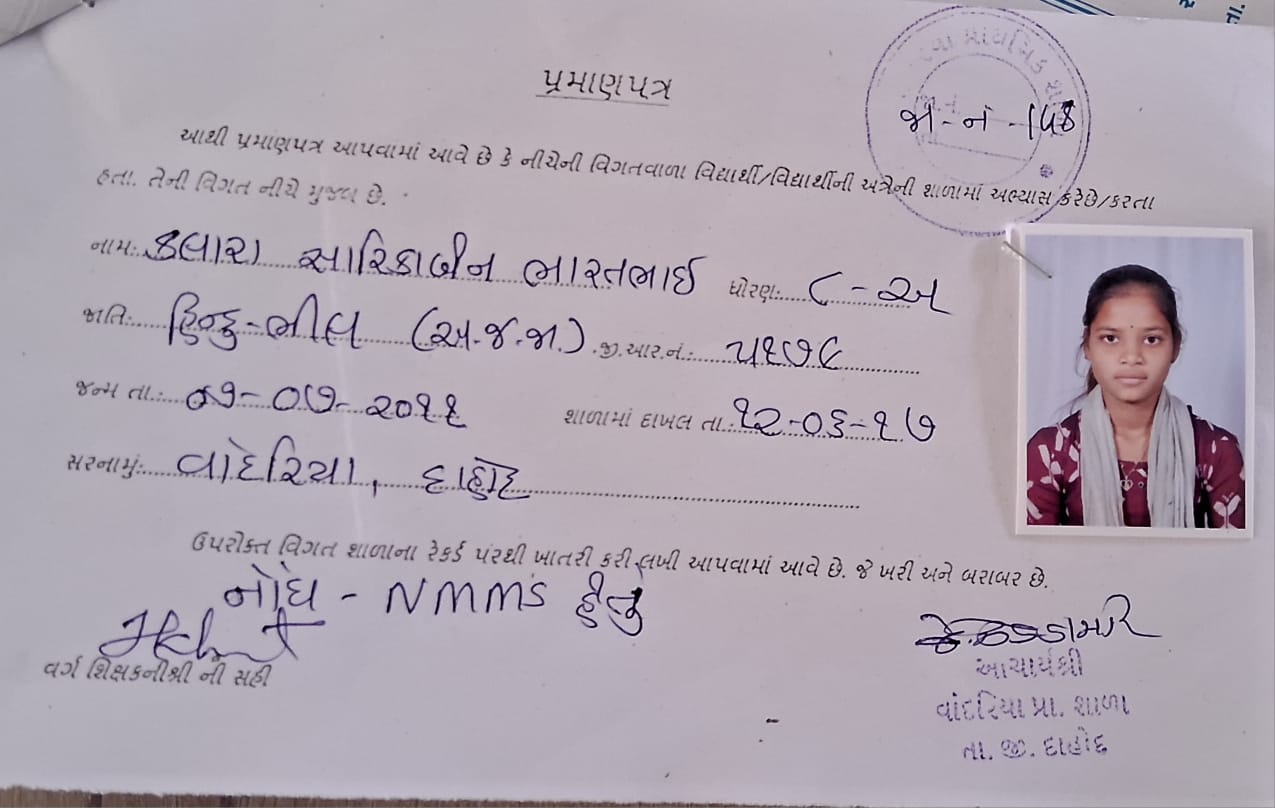 પ્રમાણપત્ર
જા - નં - 148
આથી પ્રમાણપત્ર આપવામાં આવે છે કે નીચેની વિગતવાળા વિદ્યાર્થી/વિદ્યાર્થીની અત્રેની શાળામાં અભ્યાસ કરેછે/કરતા
હતા. તેની વિગત નીચે મુજબ છે.
નામ: કલારા સારિકાબેન ભારતભાઈ ધોરણ: ૮ - અ
જાતિ: હિન્દુ - ભીલ (અ.જ.જા.) જી.આર.નં.: ૫૧૭૮
જન્મ તા.: ૦૧-૦૭-૨૦૧૧ શાળામાં દાખલ તા.: ૧૨-૦૬-૧૭
સરનામું: વાંદરિયા, દાહોદ
ઉપરોક્ત વિગત શાળાના રેકર્ડ પરથી ખાતરી કરી લખી આપવામાં આવે છે. જે ખરી અને બરાબર છે.
નોંધ - NMMS હેતું
વર્ગ શિક્ષકનીશ્રી ની સહી
આચાર્યશ્રી
વાંદરિયા પ્રા. શાળા
તા. જી. દાહોદ